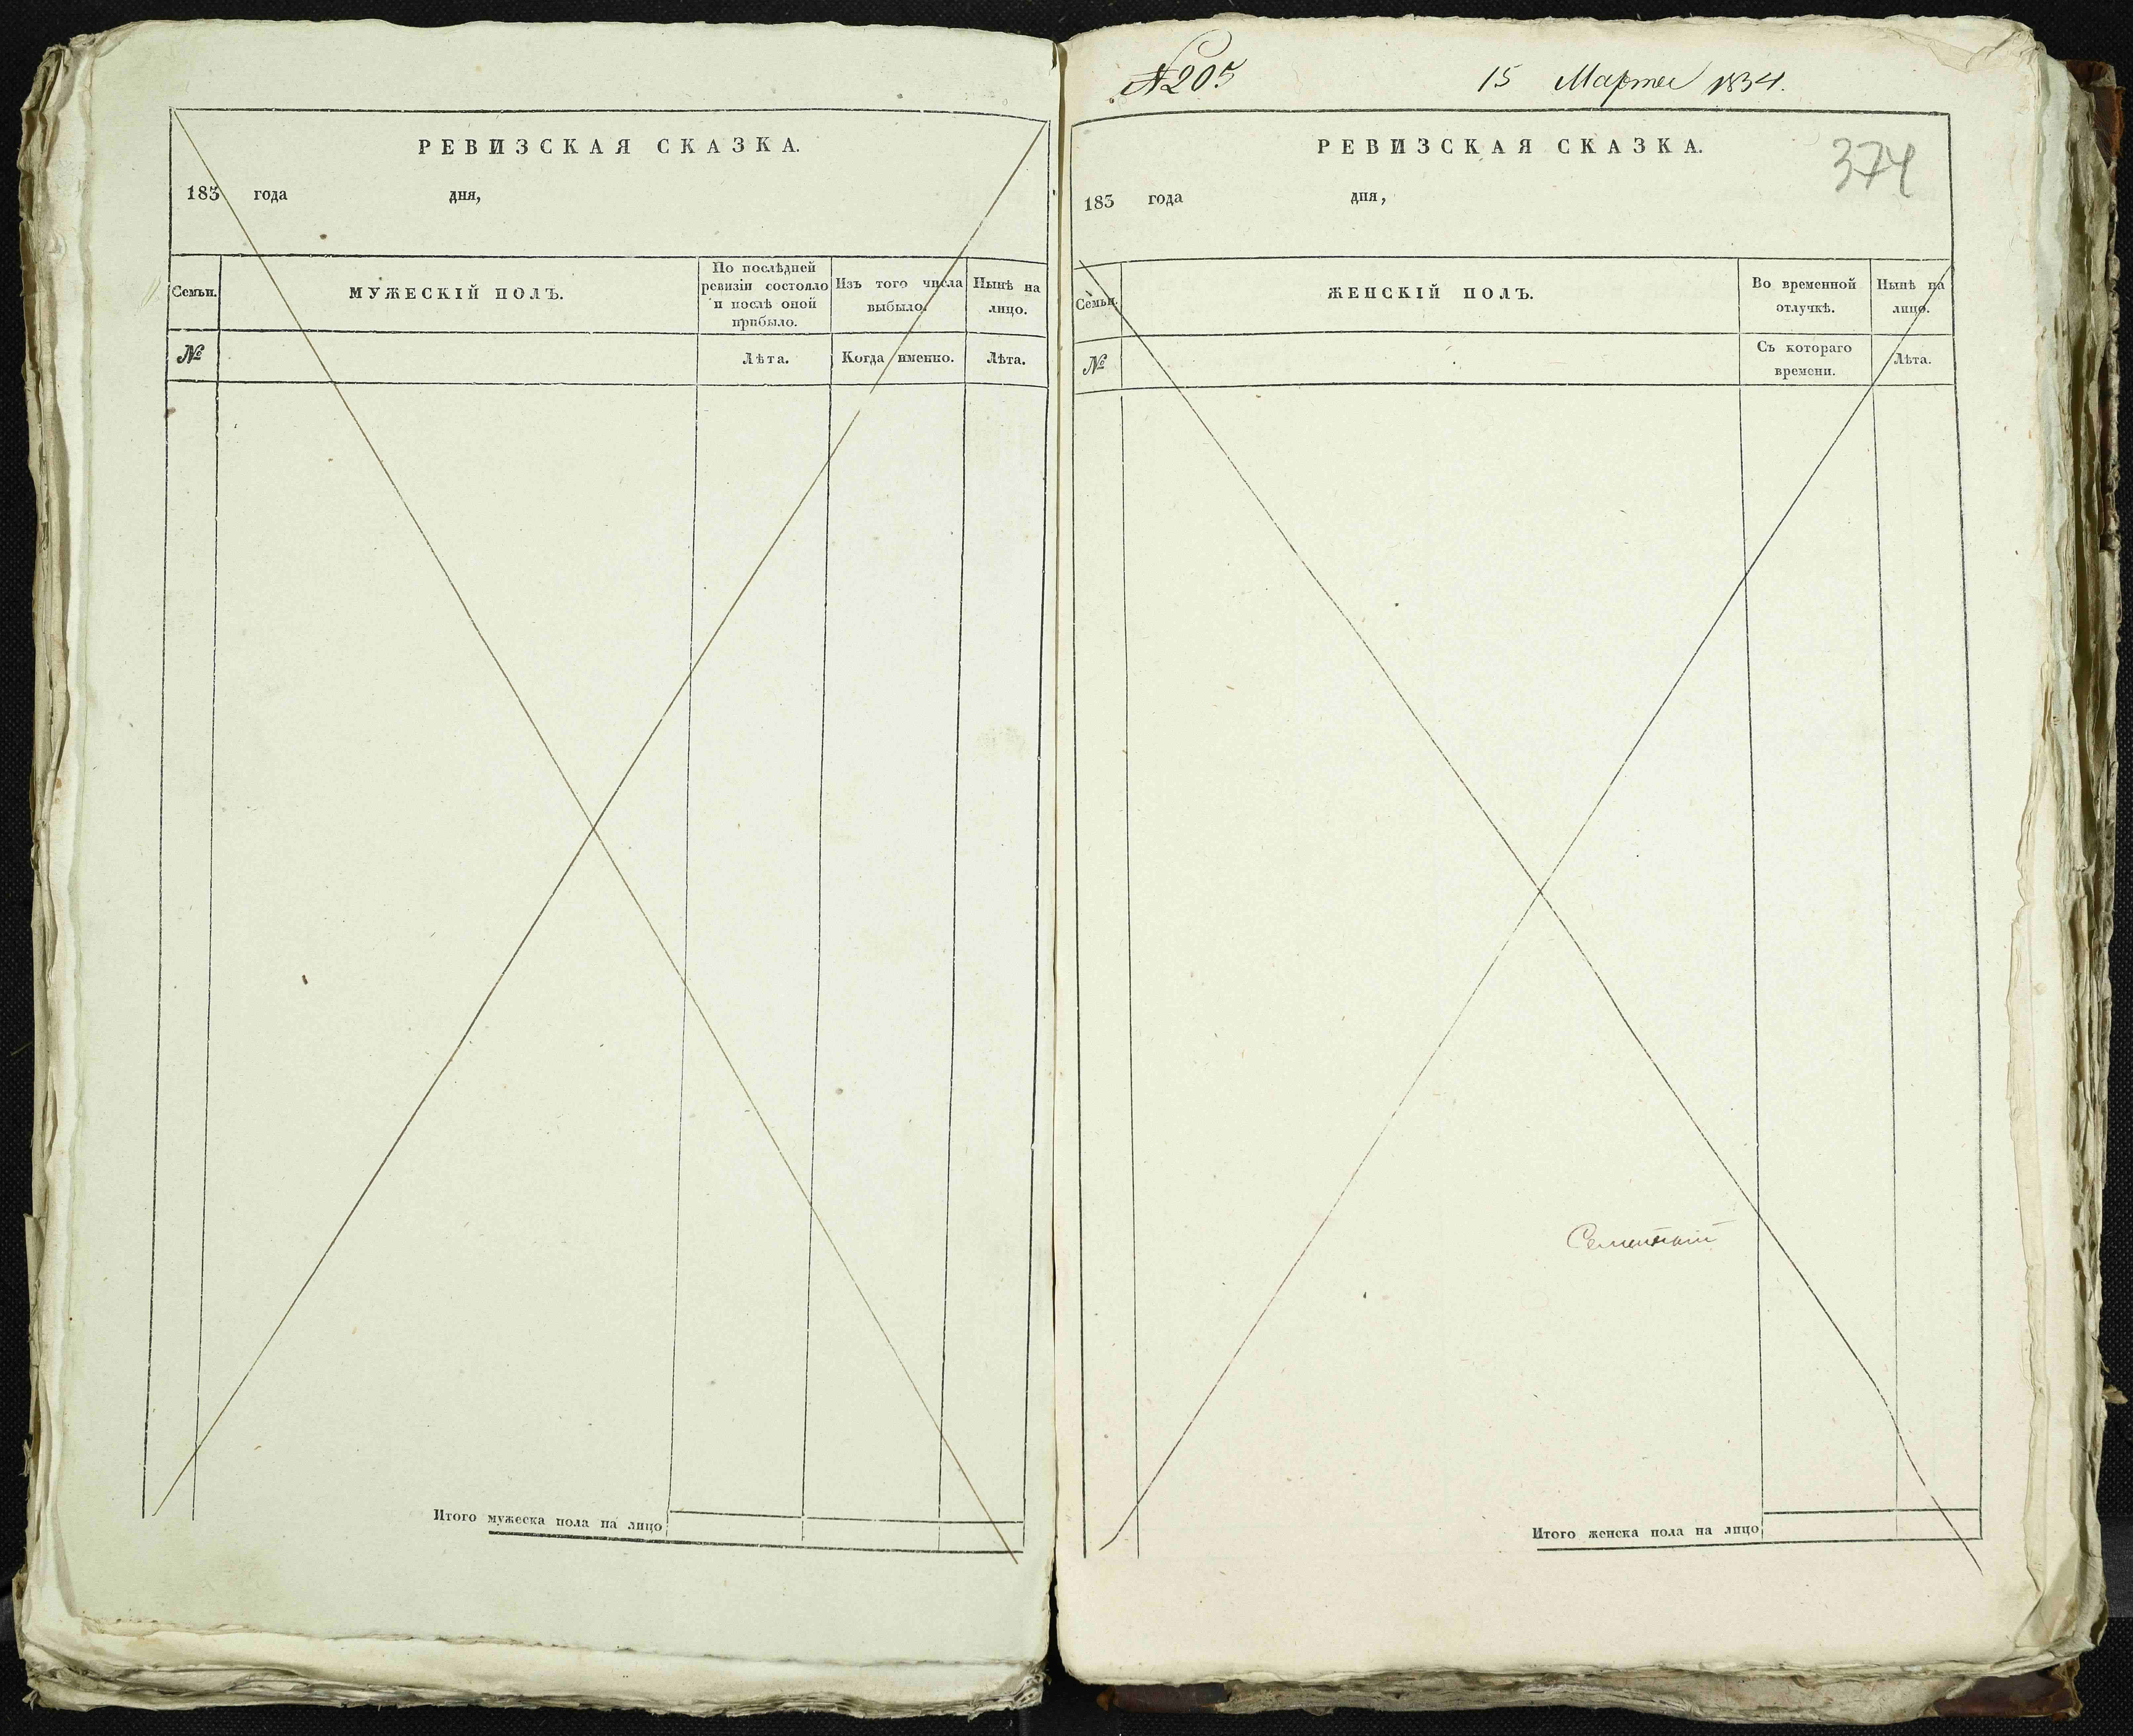 РЕВИЗСКАЯ СКАЗКА.
183 года дня,
Семьи.
МУЖЕСКІЙ ПОЛЪ.
По послѣдней
ревизіи состояло
и послѣ оной
прибыло.
Изъ того числа
выбыло.
Нынѣ на
лицо.
№
Лѣта.
Когда именно.
Лѣта.
Итого мужеска пола на лицо
№ 205
15 Марта 1834.
РЕВИЗСКАЯ СКАЗКА.
374
183 года дня,
Семьи.
ЖЕНСКІЙ ПОЛЪ.
Во временной
отлучкѣ.
Нынѣ на
лицо.
№
Съ котораго
времени.
Лѣта.
Итого женска пола на лицо